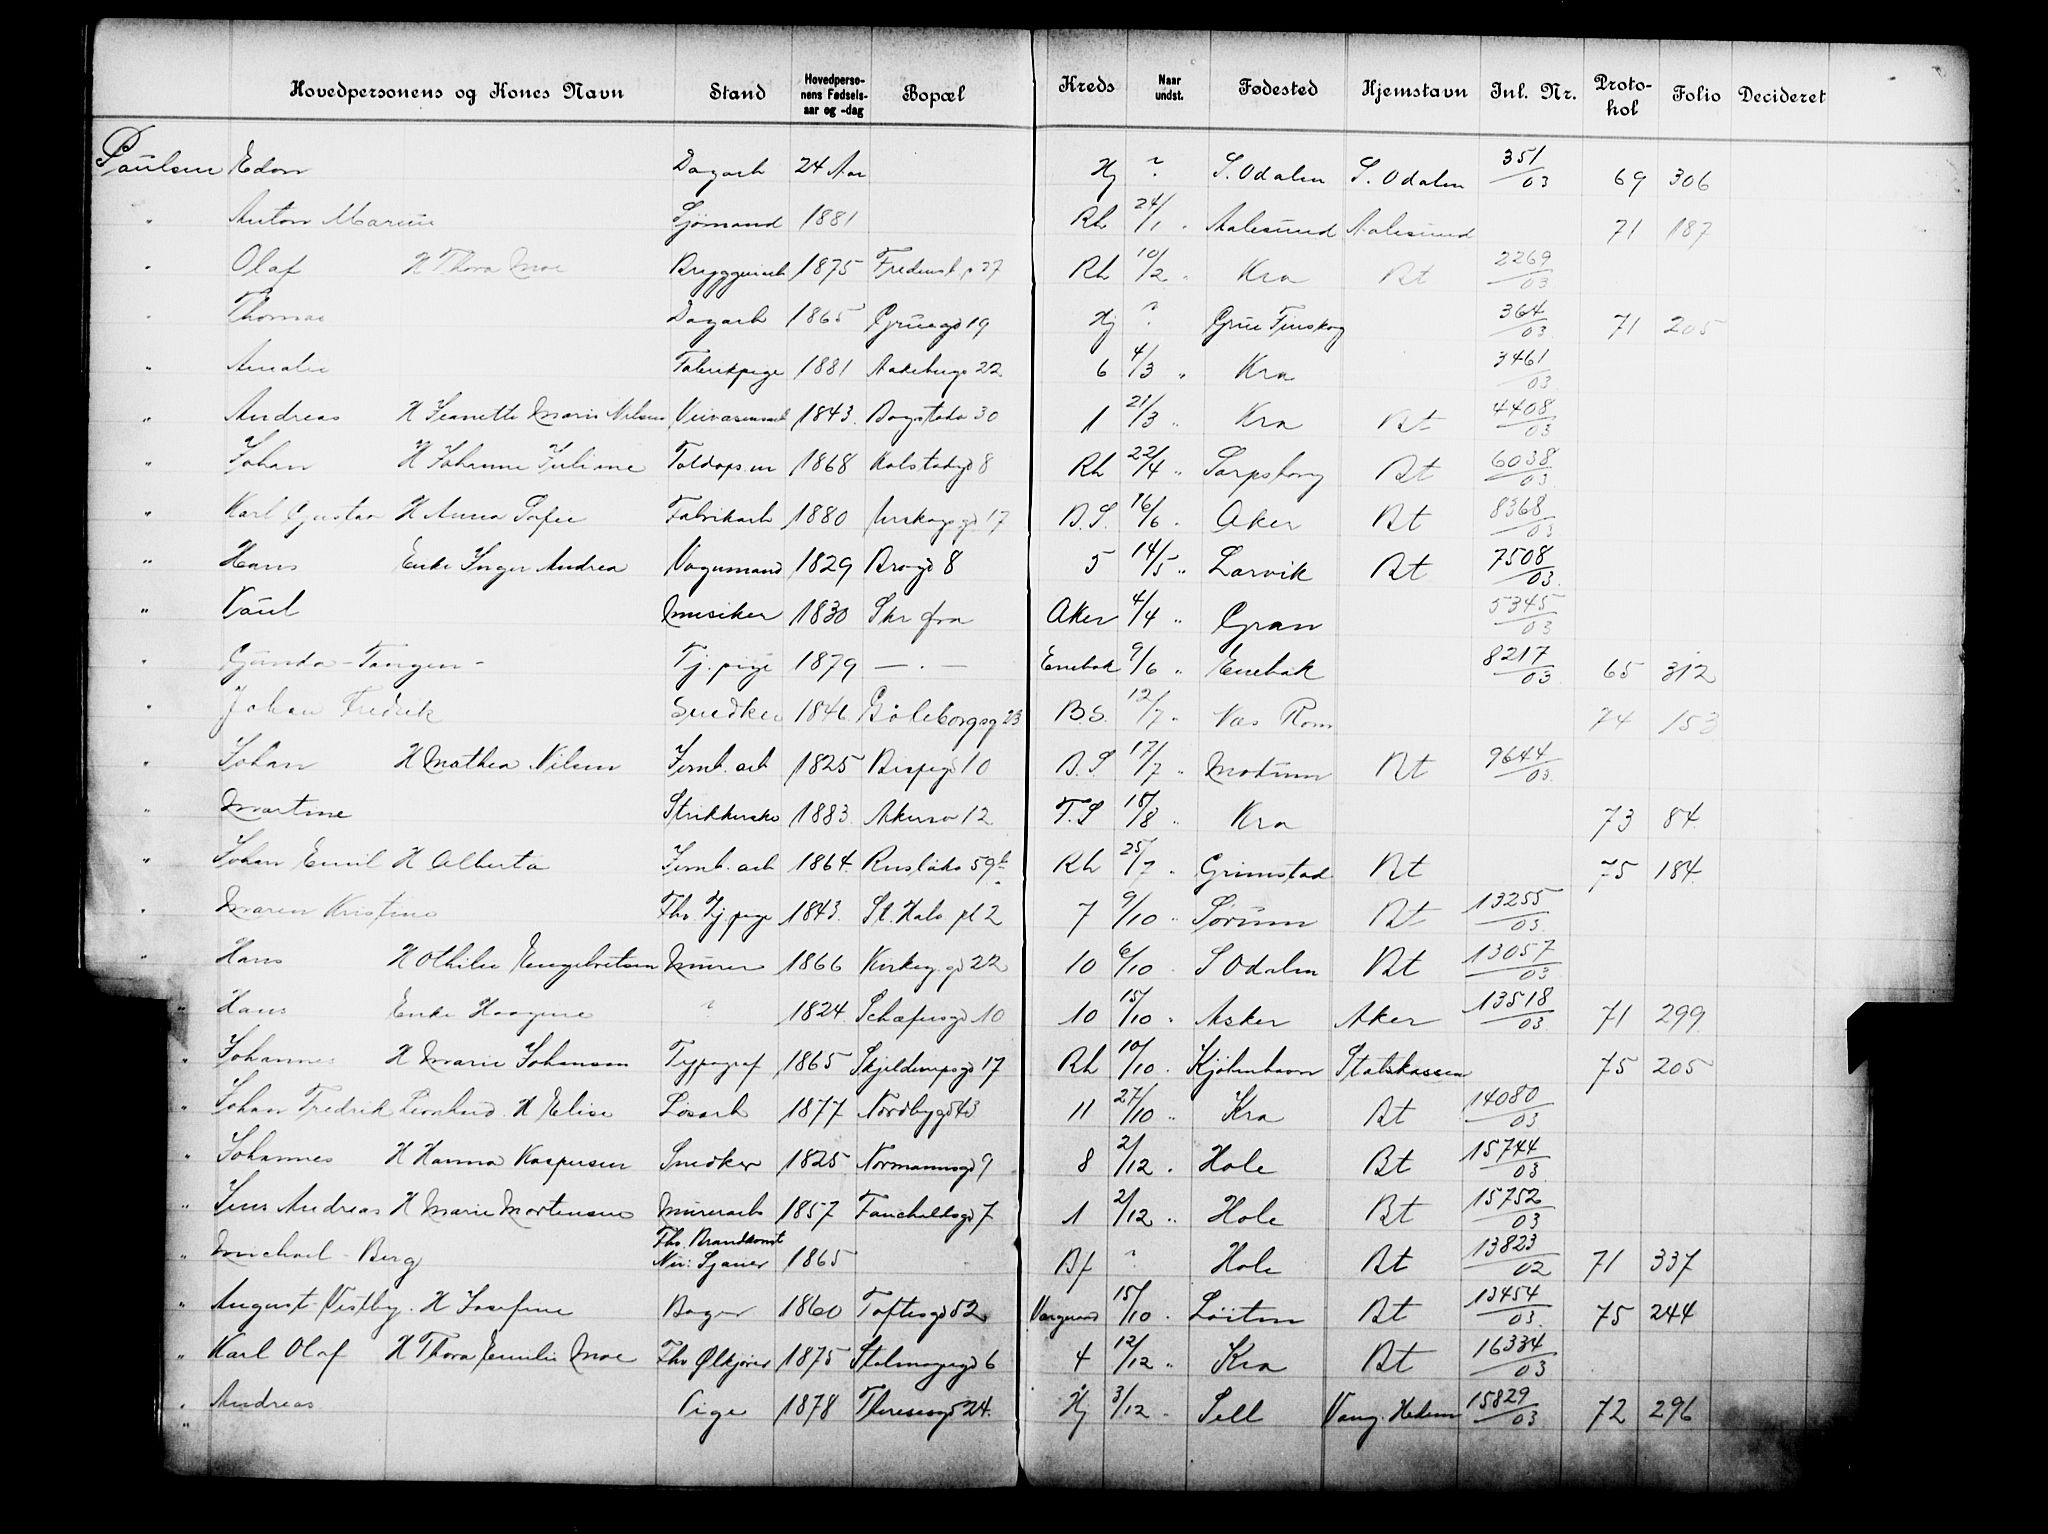 Hovedpersonens og Kones Navn Stand Hovedpersonens Fødselsaar og -dag Bopæl Kreds Naar undst. Fødested Hjemstavn Inl. Nr. Protokol Folio Decideret
Paulsen Edon Dagarb 24 Aar Hj ? S. Odalen S. Odalen 351/03 69 306
" Anton Marius Sjømand 1881 Rh 24/1 " Aalesund Aalesund 71 187
" Olaf H Thora Moe Bryggeriarb 1875 Rh 10/2 " Kra Bt 2269/03
" Thomas Dagarb 1865 Gruegd 19 Hj ? Grue Finskog 364/03 71 205
" Amalie Fabrikpige 1881 Aakebergv 22 6 4/3 " Kra 3461/03
" Andreas H Jeanette Marie Nilsen 1843 Bogstadv 30 1 21/3 " Kra Bt 4408/03
" Johan H Johanne Juliane Toldops.m 1868 Kolstadgd 8 Rh 22/4 " Sarpsborg Bt 6038/03
" Karl Gustav H Anna Sofie Fabrikarb 1880 Urskogsgd 17 B.S. 16/6 " Aker Bt 8368/03
" Hans Enke Inger Andrea Vognmand 1829 Brogd 8 5 14/5 " Larvik Bt 7508/03
" Paul Musiker 1830 Skr fra Aker 4/4 " Gran 5345/03
" Gunda - Tangen - Tj. pige 1879 — . — Enebak 9/6 " Enebak 8217/03 65 312
" Johan Fredrik Snedker 1846 Gøteborgsg 23 B.S. 12/7 " Næs Rom 74 153
" Johan H Mathea Nilsen Jernb. arb 1825 Bispegd 10 B.S. 17/7 " Modum Bt 9644/03
" Martine Strikkerske 1883 Akersv 12 F.S 18/8 " Kra 73 84
" Johan Emil H Alberta Jernb. arb 1864 Rusløkv 59 Rh 25/7 " Grimstad Bt 75 184
" Maren Kristine Fhv Tj.pige 1843 St. Halv pl 2 7 9/10 " Sørum Bt 13255/03
" Hans H Othilie Engebretsen Murer 1866 Kirkeg.gd 22 10 6/10 " S Odalen Bt 13057/03
" Hans Enke Haagine ? 1824 Schæfersgd 10 10 15/10 " Asker Aker 13518/03 71 299
" Johannes H Marie Johansen Typograf 1865 Skjeldrupsgd 17 Rh 10/10 " Kjøbenhavn Statskassen 75 205
" Johan Fredrik Leonhard H Elise Løsarb 1877 Nordbygd 43 11 27/10 " Kra Bt 14080/03
" Johannes H Hanna Kaspersen Snedker 1825 Normannsgd 9 8 2/12 " Hole Bt 15744/03
" Jens Andreas H Marie Mortensen Murerarb 1857 Fauchaldsgd 7 1 2/12 " Hole Bt 15752/03
" Michael - Berg Fhv. Brandkonst Nu: Sjauer 1865 Bf ? Hole Bt 13823/02 71 337
" August Vestby. H Josefine Bager 1860 Toftesgd 52 15/10 " Løiten Bt 13454/03 75 244
" Karl Olaf H Thora Emilie Moe Fhv Ølkjører 1875 Stolmagergd 6 4 12/12 " Kra Bt 16334/03
" Andreas Pige 1878 Theresesgd 24 Hj 3/12 " Sell Vang. Hedem 15829/03 72 296
"